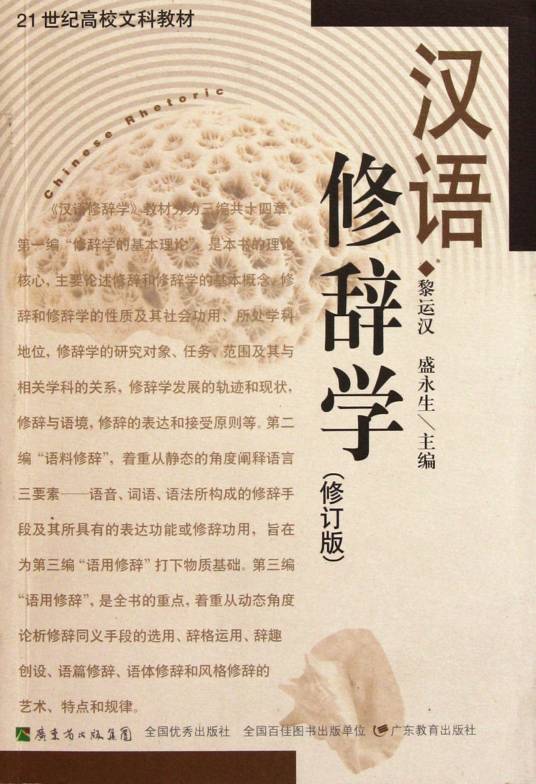 21世纪高校文科教材
汉语
修辞学
(修订版)
黎运汉 盛永生\主编
Chinese Rhetoric
《汉语修辞学》教材分为三编共十四章。
第一编“修辞学的基本理论”，是本书的理论
核心，主要论述修辞和修辞学的基本概念，修
辞和修辞学的性质及其社会功用、所处学科
地位，修辞学的研究对象、任务、范围及其与
相关学科的关系，修辞学发展的轨迹和现状，
修辞与语境，修辞的表达和接受原则等。第二
编“语料修辞”，着重从静态的角度阐释语言
三要素——语音、词语、语法所构成的修辞手
段及其所具有的表达功能或修辞功用，旨在
为第三编“语用修辞”打下物质基础。第三编
“语用修辞”，是全书的重点，着重从动态角度
论析修辞同义手段的选用、辞格运用、辞趣
创设、语篇修辞、语体修辞和风格修辞的
艺术、特点和规律。
广东省出版集团 全国优秀出版社 全国百佳图书出版单位 广东教育出版社